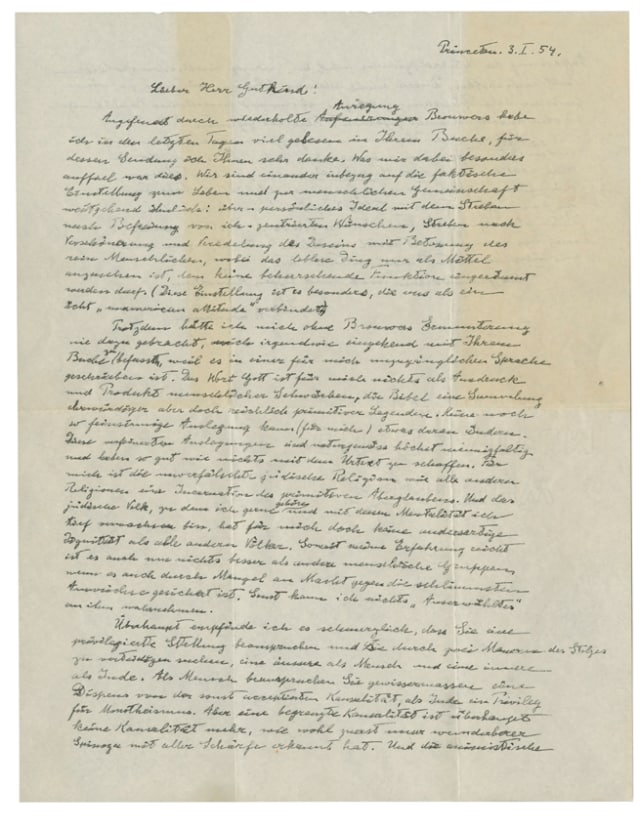 Princeton. 3. I. 54.
Lieber Herr Gutkind!
Anregung
Angefeuert durch wiederholte Brouwers habe
ich in den letzten Tagen viel gelesen in Ihrem Buche, für
dessen Sendung ich Ihnen sehr danke. Was mir dabei besonders
auffiel war dies. Wir sind einander inbezug auf die faktische
Einstellung zum Leben und zur menschlichen Gemeinschaft
weitgehend ähnlich: persönliches Ideal mit dem Streben
nach Befreiung von ich-zentrierten Wünschen, Streben nach
Verschönerung und Veredelung des Daseins mit Betonung des
rein Menschlichen, wobei das leblose Ding nur als Mittel
anzusehen ist, dem keine beherrschende Funktion eingeräumt
werden darf. (Diese Einstellung ist es besonders, die uns als ein
echt "unamerican attitude" verbindet)
Trotzdem hätte ich mich ohne Brouwers Ermunterung
nie dazu gebracht, mich irgendwie eingehend mit Ihrem
Buche zu befassen, weil es in einer für mich unzugänglichen Sprache
geschrieben ist. Das Wort Gott ist für mich nichts als Ausdruck
und Produkt menschlicher Schwächen, die Bibel eine Sammlung
ehrwürdiger aber doch reichlich primitiver Legenden. Keine noch
so feinsinnige Auslegung kann (für mich) etwas daran ändern.
Diese verfeinerten Auslegungen sind naturgemäss höchst mannigfaltig
und haben so gut wie nichts mit dem Urtext zu schaffen. Für
mich ist die unverfälschte jüdische Religion wie alle anderen
Religionen eine Incarnation des primitiven Aberglaubens. Und das
jüdische Volk, zu dem ich gern gehöre und mit dessen Mentalität ich
tief verwachsen bin, hat für mich doch keine andersartige
Dignität als alle anderen Völker. Soweit meine Erfahrung reicht
ist es auch um nichts besser als andere menschliche Gruppen,
wenn es auch durch Mangel an Macht gegen die schlimmsten
Auswüchse gesichert ist. Sonst kann ich nichts "Auserwähltes"
an ihm wahrnehmen.
Überhaupt empfinde ich es schmerzlich, dass Sie eine
privilegierte Stellung beanspruchen und sie durch zwei Mauern des Stolzes
zu verteidigen suchen, eine äussere als Mensch und eine innere
als Jude. Als Mensch beanspruchen Sie gewissermassen einen
Dispens von der sonst acceptierten Kausalität, als Jude ein Privileg
für Monotheismus. Aber eine begrenzte Kausalität ist überhaupt
keine Kausalität mehr, wie wohl zuerst unser wunderbarer
Spinoza mit aller Schärfe erkannt hat. Und die animistische